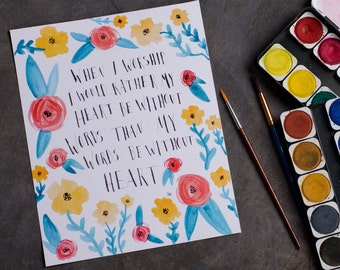 WHEN I WORSHIP
I WOULD RATHER MY
HEART BE WITHOUT
WORDS THAN MY
WORDS BE WITHOUT
HEART